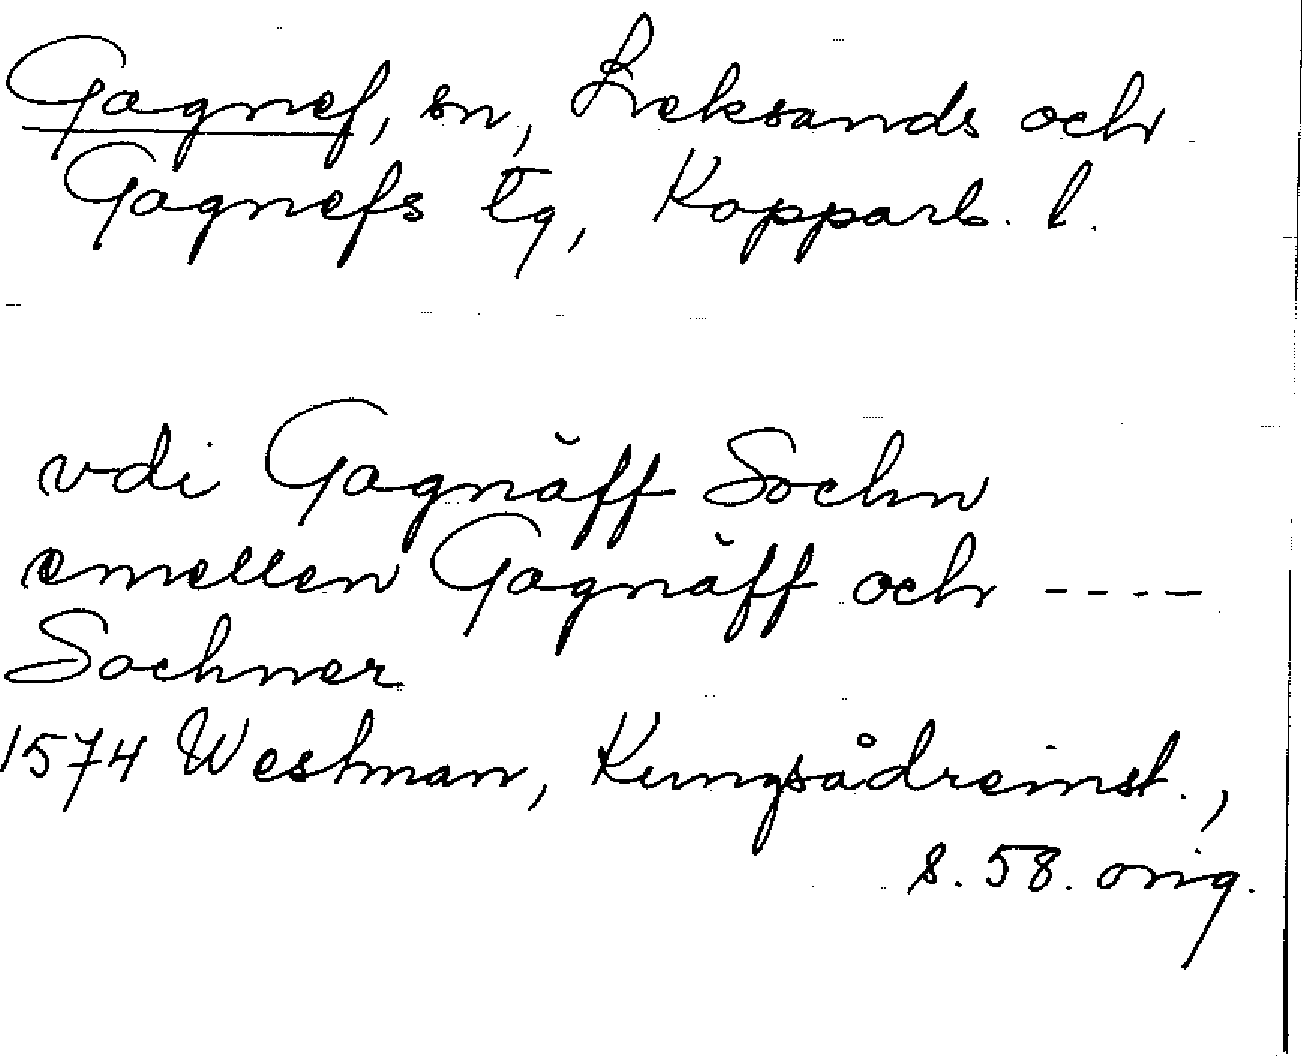 Gagnef, sn, Leksands och
Gagnefs tg, Kopparb. l.
vdi Gagnäff Sochn
emellen Gagnäff och ----
Sochner
1574 Westman, Kungsådreinst.,
s. 58. orig.